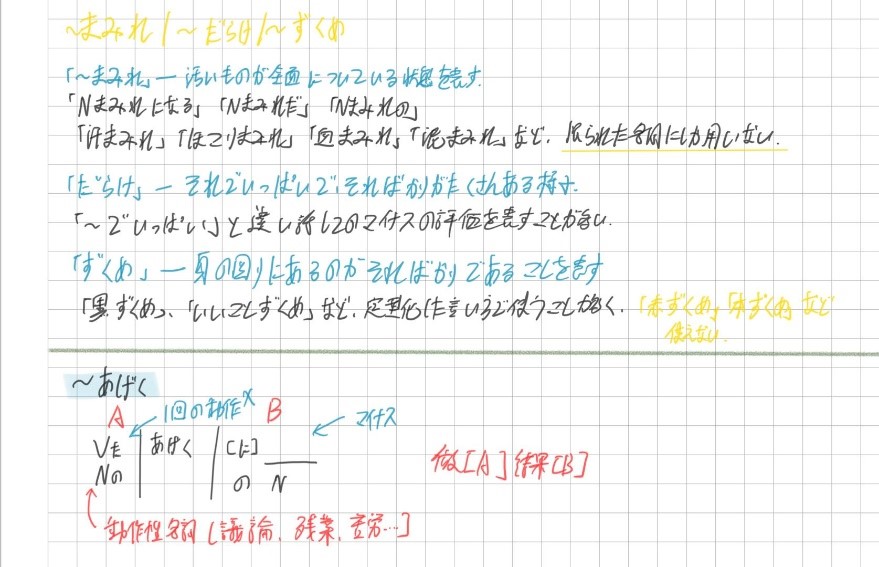 ～まみれ/～だらけ/～ずくめ
「～まみれ」— 汚いものが全面についている状態を表す.
「Nまみれになる」「Nまみれだ」「Nまみれの」
「汗まみれ」「ほこりまみれ」「血まみれ」「泥まみれ」など、限られた名詞にしか用いない.
「だらけ」— それでいっぱいで、そればかりがたくさんある様子.
「～でいっぱい」と違い話し手のマイナスの評価を表すことが多い.
「ずくめ」— 身の回りにあるのがそればかりであることを表す
「黒ずくめ」、「いいことずくめ」など、定型化した言い方で使うことが多く、「赤ずくめ」「本ずくめ」など
使えない.
～あげく
A 1回の動作× B マイナス
Vた あげく [に]
Nの の N
做[A]结果[B]
動作性名詞 [議論、残業、苦労…]